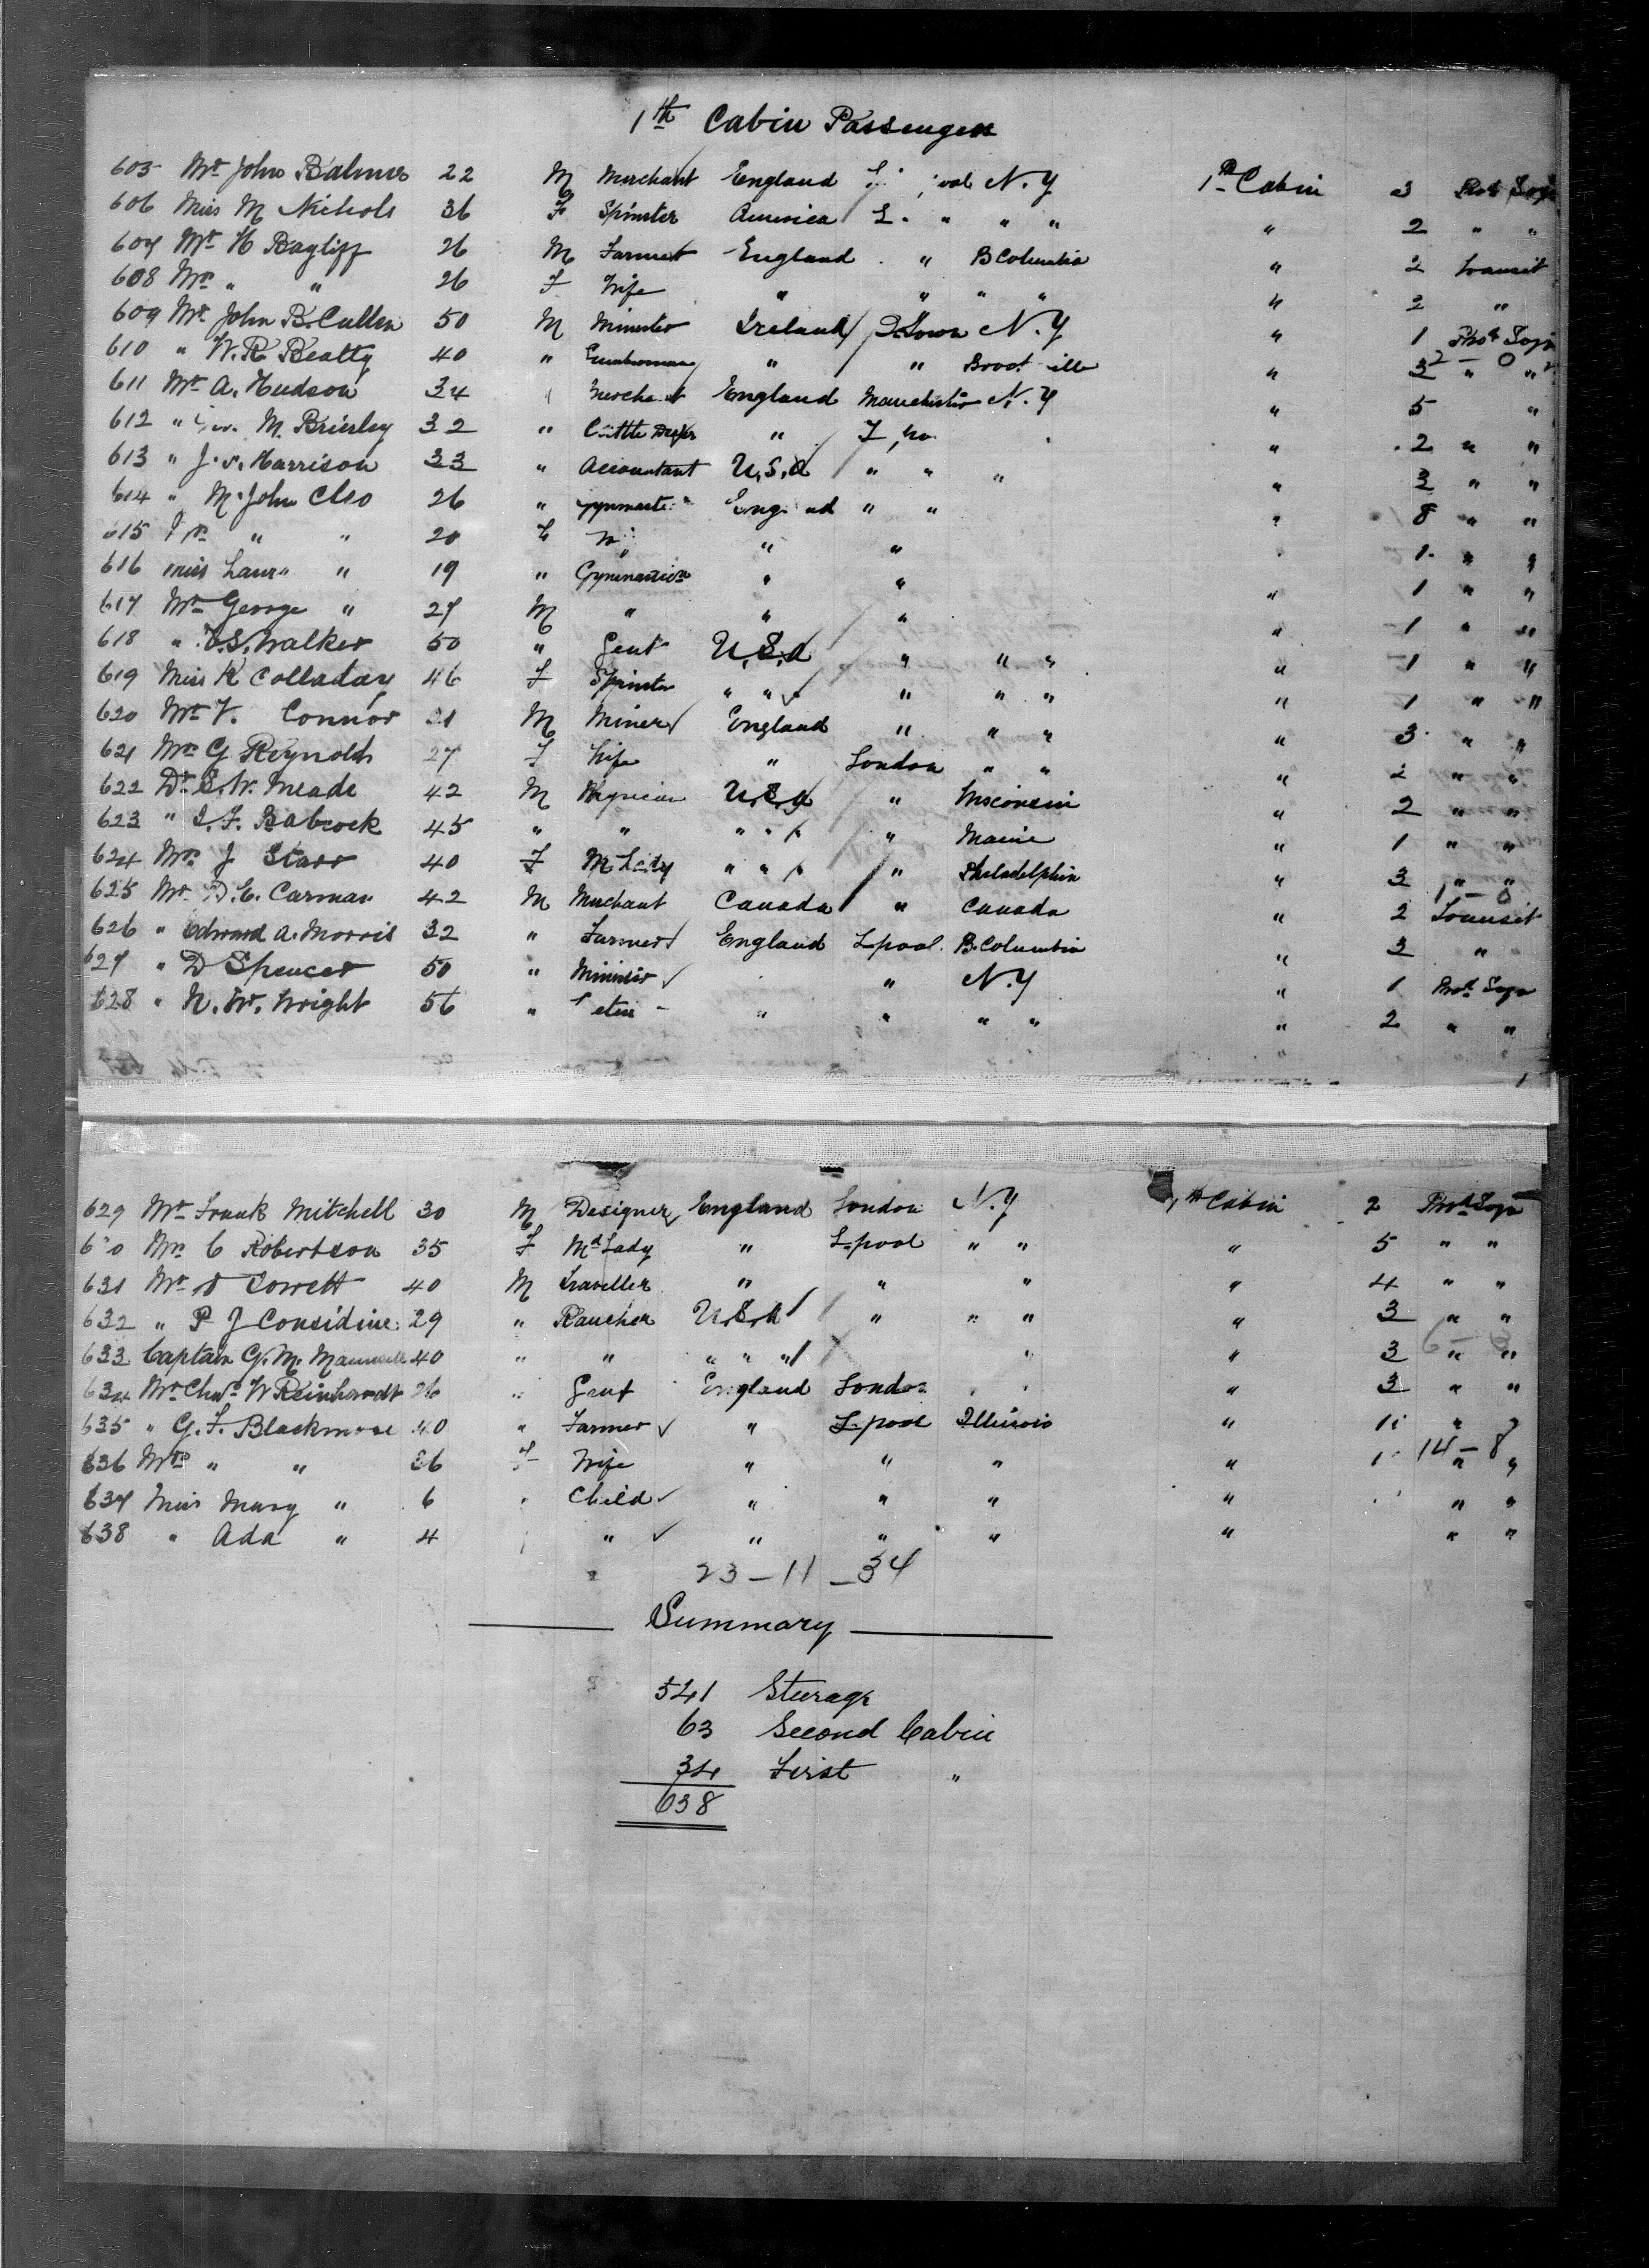 1th Cabin Passengers
605 Mr John Balmer 22 M Merchant England L pool N.Y 1st Cabin 3 Prot Sojn
606 Miss M Nichols 36 F Spinster America L " " " " 2 " "
607 Mr H Bagliff 26 M Farmer England " B Columbia " 2 Transit
608 Mrs " " 26 F Wife " " " " " 2 "
609 Mr John B. Cullen 50 M Minister Ireland Q Town N.Y " 1 Prot Sojn
610 " W. R. Beatty 40 " " " " 3 2 - 0 " "
611 Mr A. Hudson 34 Merchant England Manchester N.Y " 5 "
612 " Geo. M. Brierley 32 " Cattle " L po " 2 " "
613 " J. Harrison 33 " Accountant U.S.A " " " " 3 " "
614 " M. John Cleo 26 " England " " " 8 " "
615 " " 20 F " " 1 " "
616 Miss Laura " 19 " Gymnastics " " " 1 " "
617 Mr George " 27 M " " " " 1 " "
618 " S. Walker 50 " Gent U.S.A " " " " 1 " "
619 Miss K Colladay 46 F Spinster " " " " " " 1 " "
620 Mr V. Connor 21 M Miner England " " " " 3 " "
621 Mrs G Reynolds 27 F Wife " London " " " 2 " "
622 Dr S. W. Meade 42 M Physician U.S.A " Wisconsin " 2 " "
623 " I. F. Babcock 45 " " " " " Maine " 1 " "
624 Mrs J Starr 40 F M Lady " " " Philadelphia " 3 " "
625 Mr D. E. Carman 42 M Merchant Canada " Canada " 1 - 0 2 Transit
626 " Edward A. Morris 32 " Farmer England Lpool B. Columbia " 3 "
627 " D Spencer 50 " Minister " N.Y " 1 Prot Sojn
628 " N. W. Wright 56 " " " " " " 2 " "
629 Mr Frank Mitchell 30 M Designer England London N.Y 1th Cabin 2 Prot Sojn
630 Mrs C Robertson 35 F Md Lady " L pool " " " 5 " "
631 Mr Corrett 40 M Traveller " " " " 4 " "
632 " P J Considine 29 " Rancher U.S.A " " " " 3 " "
633 Captain G. M. 40 " " " " " " " 3 6 - 3 " "
634 Mr Chas W Reinhardt 26 " Gent England London " " " 3 " "
635 " G. F. Blackmore 40 " Farmer " L pool Illinois " 11 " "
636 Mrs " " 36 F Wife " " " " 1 14 - 8 " "
637 Miss Mary " 6 " Child " " " " " "
638 " Ada " 4 " " " " " " "
23 - 11 - 34
Summary
541 Steerage
63 Second Cabin
34 First "
638